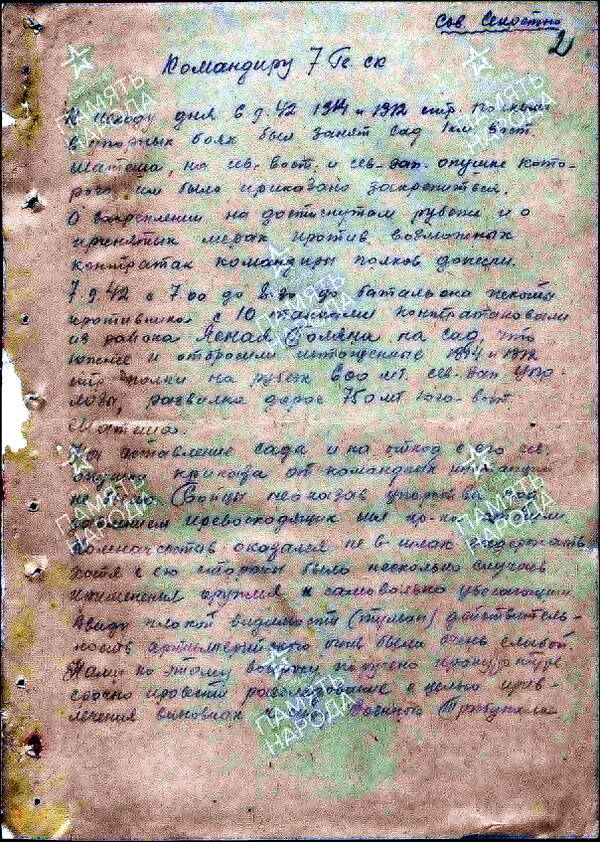 Сов Секретно
2
Командиру 7 Гв. ск
К исходу дня 6.9.42 1314 и 1312 стр. полками
в упорных боях был занят сад 1 км. вост.
на сев. вост. и сев-зап. опушке кото-
рого им было приказано закрепиться.
О закреплении на достигнутом рубеже и о
принятых мерах против возможных
контратак командиры полков донесли.
7.9.42 с 7 00 до 8. до батальона пехоты
противника с 10 танками контратаковали
из района Ясная Поляна на сад, что
южнее и отбросили истощенные 1314 и 1312
стр полки на рубеж 600 мт. сев-зап.
развилка дорог 750 мт. юго-вост.
На оставление сада и на отход с его сев.
опушки приказа от командных инстанций
не было. Бойцы не оказав упорства под
превосходящих сил пр-ка
Комначсостав оказался не в силах удержать
хотя с его стороны было несколько случаев
применения оружия к самовольно убегающим.
Ввиду плохой видимости (туман) действитель-
ность артиллерийского огня была очень слабой.
Нами по этому вопросу поручено прокурору
срочно провести расследование с целью прив-
лечения виновных Военного Трибунала
ПАМЯТЬ НАРОДА
ПАМЯТЬ НАРОДА
ПАМЯТЬ НАРОДА
ПАМЯТЬ НАРОДА
ПАМЯТЬ НАРОДА
ПАМЯТЬ НАРОДА